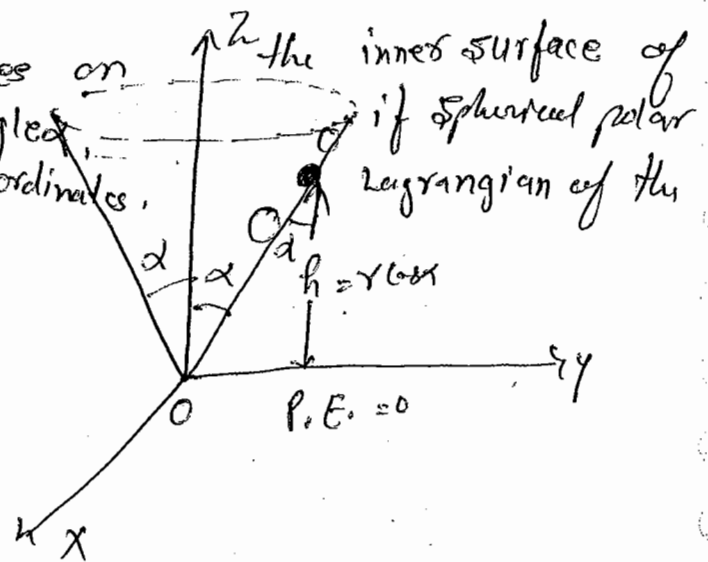 Z
es on the inner surface of
gled, if Spherical polar
ordinates. Lagrangian of the
α α α
h = r cosα
y
O P.E. =0
X